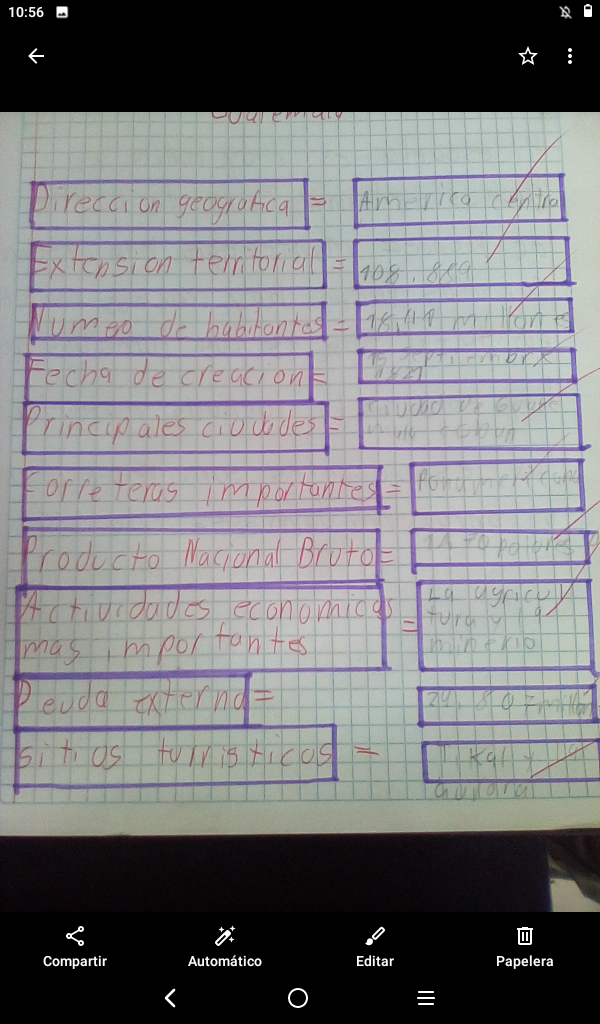 10:56
Guatemala
Direccion geografica = America centra
Extension territorial = 108.889
Numeo de habitantes = 18,40 millones
Fecha de creacion = 15 septiembre
1821
Principales ciudades = ciudad de Guate
Correteras importantes = Panamericana
Producto Nacional Bruto =
Actividades economicas = La agricul
mas importantes tura y la
mineria
Deuda externa = 24,807 mill
sitios turristicos = Tikal y la
Compartir
Automático
Editar
Papelera